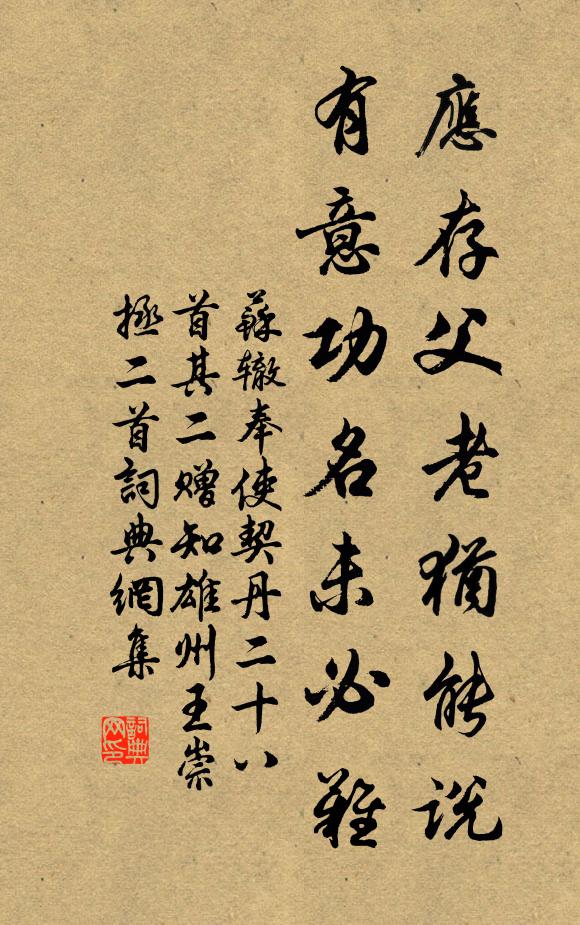 應存父老猶能說
有意功名未必難
蘇轍奉使契丹二十八
首其二贈知雄州王崇
拯二首詞典網集
詞典网印